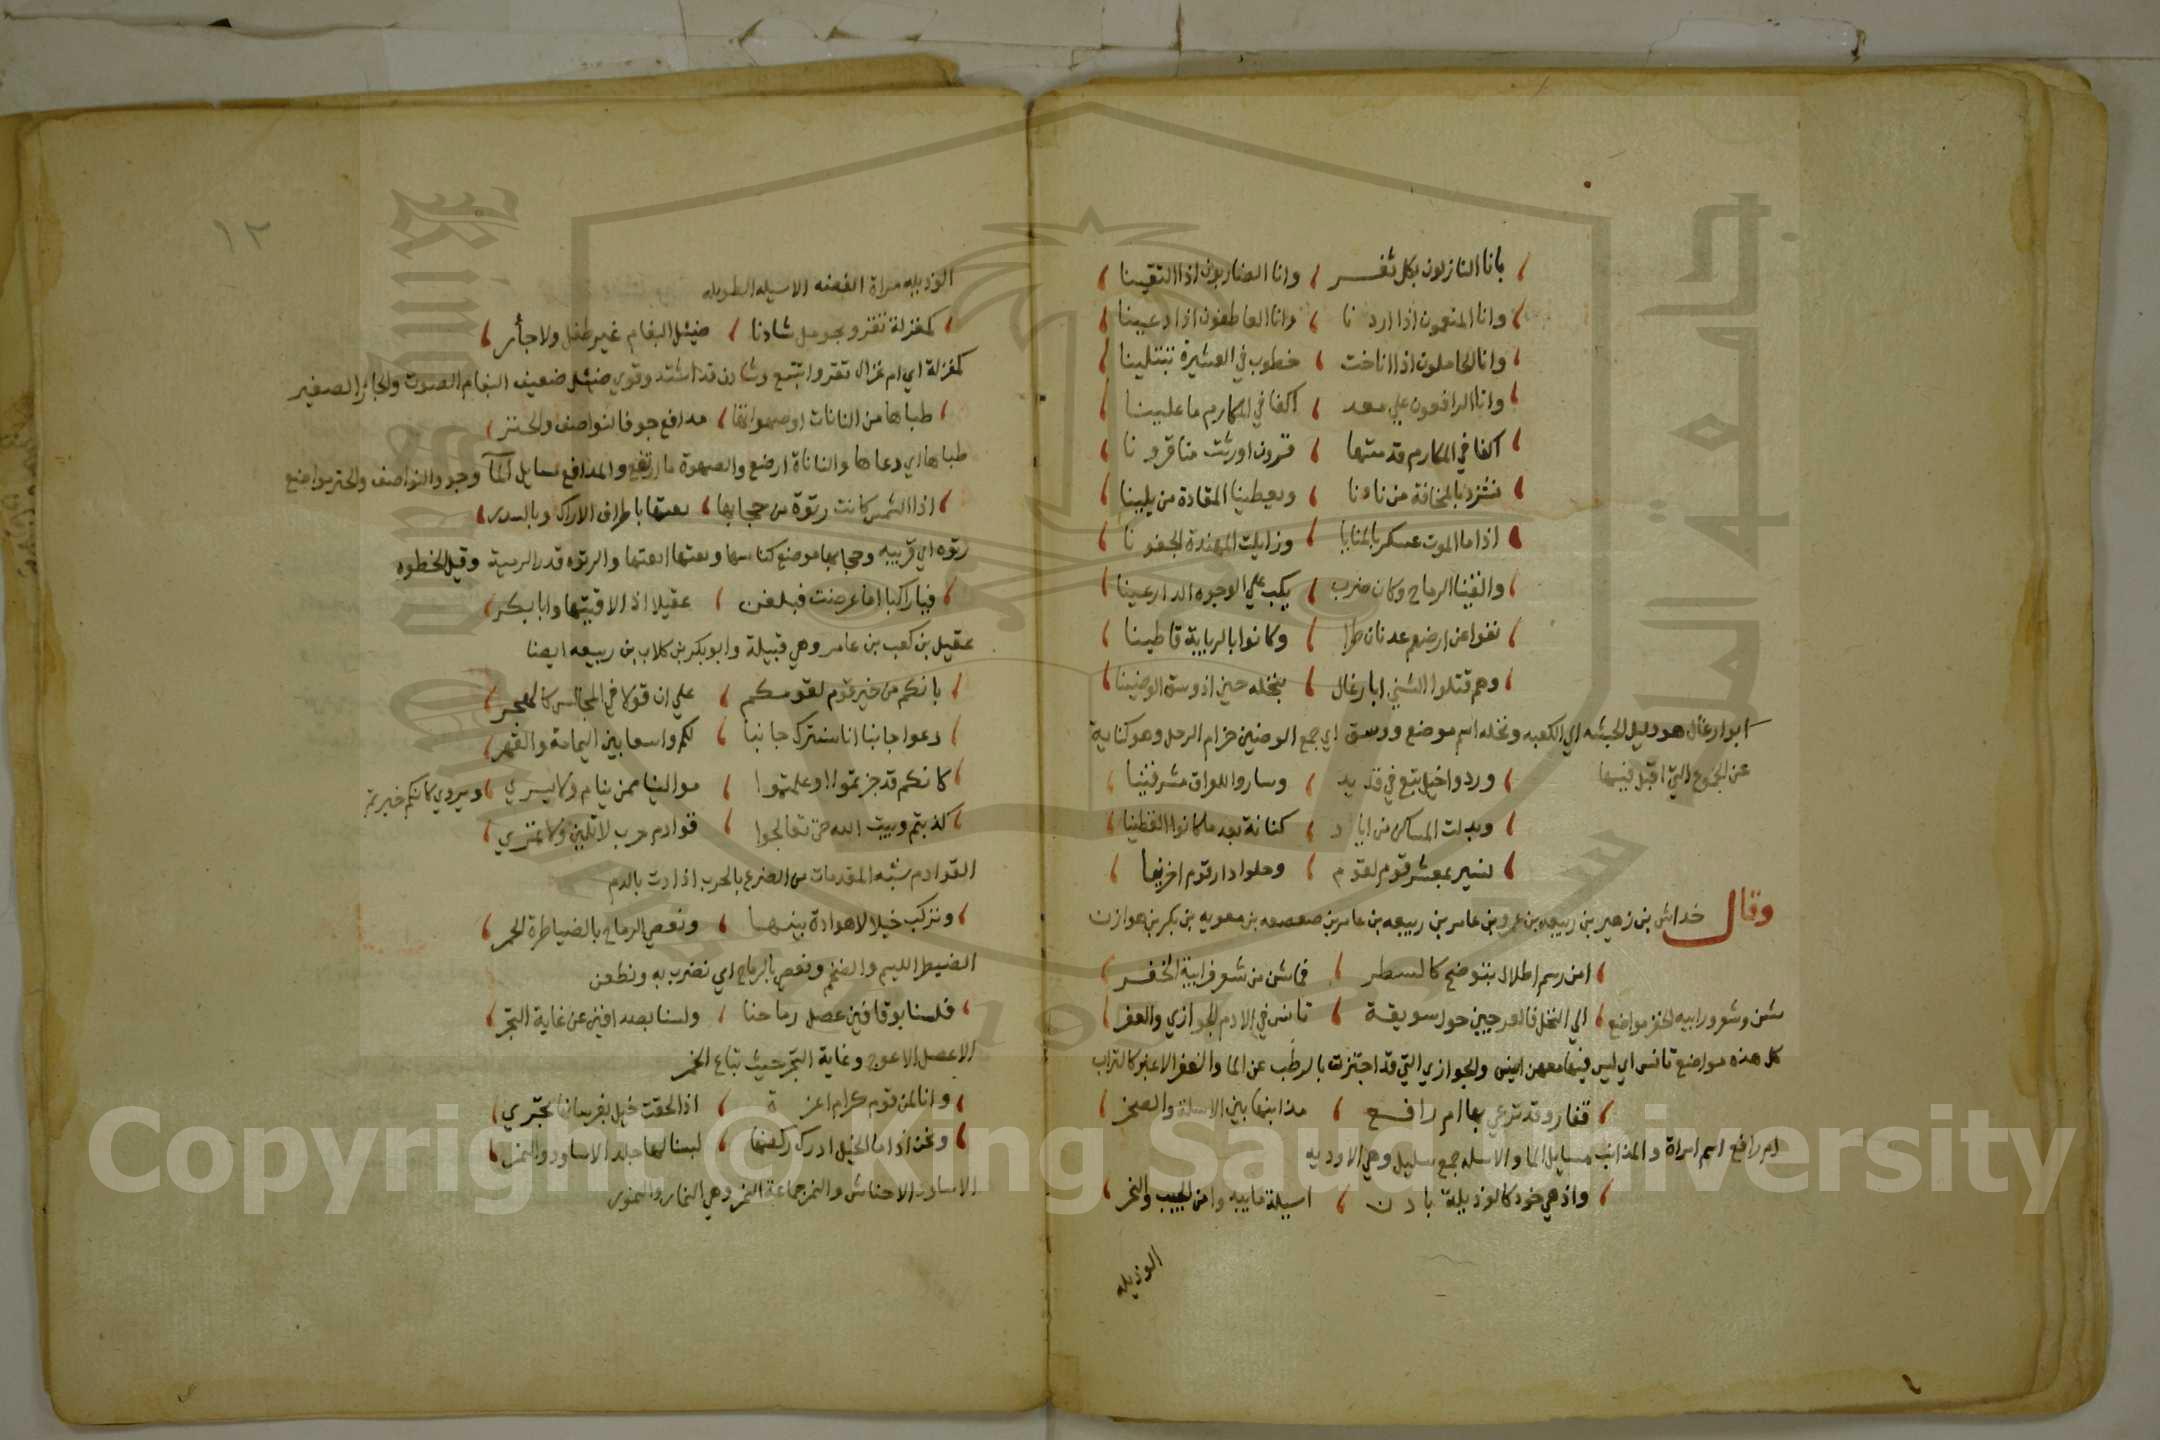 بانا النازلون بكل ثغر وانا الضاربون اذا التقينا
وانا المنعمون اذا اردنا وانا العاطفون اذا دعينا
وانا الحاملون اذا اناخت خطوب في العشيرة تبتلينا
وانا الرافعون علي معد اكفا في المكارم ما علينا
اكفا في المكارم قدمتها قرون اورثت منا قرونا
نشرد بالمخافة من نادنا ويعطينا المقادة من يلينا
اذا ما الموت عسكر بالمنايا وزايلت المهندة الجفونا
والقينا الرماح وكان ضرب يكب علي الوجوه الدارعينا
نفوا عن ارضهم عدنان طرا وكانوا بالربابة قاطينا
وهم قتلوا الشني ابا رغال بنخله حين اذ وسق الوضينا
ابوا رغال هو دليل الحبشه الي الكعبه ونخله اسم موضع ووسق اي جمع الوضين حزام الرحل وهو كناية
عن الجموع التي اقبل فيها
وردوا خيل تبع في قديد وساروا للعراق مشرقينا
وبدلت المساكن من اياد كنانة بعد ما كانوا القطينا
نسير بمعشر قوم لقوم وحلوا دار قوم اخرينا
وقال خداش بن زهير بن ربيعه بن عمرو بن عامر بن ربيعه بن عامر بن صعصعه بن معويه بن بكر بن هوازن
امن رسم اطلال بتوضح كالسطر فماشن من شعر فرابية الخفر
شن وشعر ورابيه الخفر مواضع الي النخل فالعرجين حول سويقة تانس في الادم الجوازي والعفر
كل هذه مواضع تانس اي ليس فيها معهن انيس والجوازي التي قد اجتزت بالرطب عن الما والعفر الاعفر كالتراب
قفار وقد ترعي بها ام رافع مذانبها بين الاسلة والصخر
ام رافع اسم امراة والمذانب مسايل الما والاسله جمع سليل وهي الاوديه
واذ هي خود كالوذيلة بادن اسيلة ما يبدو من الجيب والنحر
الوذيله
١٢
الوذيله مراة الفضه الاسيله الطويله
كمغزلة تقرو بحومل شادنا ضئيل البغام غير طفل ولا جأر
كمغزلة اي ام غزال تقروا تتبع وشادن قد اشتد وقوي ضئيل ضعيف البغام الصوت والجأر الصغير
طباها من النانات او صهواتها مدافع جوفا لنواصف والحتر
طباها اي دعاها والناناة ارضع والصهوة ما ارتفع والمدافع مسايل المآ وجو والنواصف والحتر مواضع
اذا الشمس كانت رتوة من حجابها تقتها باطراف الاراك وبالسدر
رتوه اي قريبه وحجابها موضع كناسها وتقتها اتقتها والرتوه قدر الرمية وقيل الخطوه
فيا راكبا اما عرضت فبلغن عقيلا اذا لاقيتها وابا بكر
عقيل بن كعب بن عامر وهي قبيلة وابو بكر بن كلاب بن ربيعه ايضا
بانكم من خير قوم لقومكم علي ان قولا في المجالس كالهجر
دعوا جانبا انا سنترك جانبا لكم واسعا بين اليمامة والقهر
كانكم قد جزتموا وعلمتموا موالينا ممن ينام ولا يسري ويروي كانكم خبرتم
كذبتم وبيت الله حتي تعالجوا قوادم حرب لا تلين ولا تمري
القوادم شبه المقدمات من الضرع بالحرب اذا درت بالدم
ونركب خيلا لا هوادة بينها ونعصي الرماح بالضياطرة الحمر
الضيطر اللئيم والضخم ونعصي بالرماح اي نضرب به ونطعن
فلسنا بوقافين عصل رماحنا ولسنا بصدافين عن غاية التجر
الاعصل الاعوج وغاية التجر حيث تباع الخمر
وانا لمن قوم كرام اعزة اذا لحقت خيل بفرسانها تجري
ونحن اذا ما الخيل ادرك ركضها لبسنا لها جلد الاساود والنمر
الاساود الاحناش والنمر جماعة النمر وهي النمار والنمور
Copyright © King Saud University
جامعة الملك سعود
King Saud University
1957